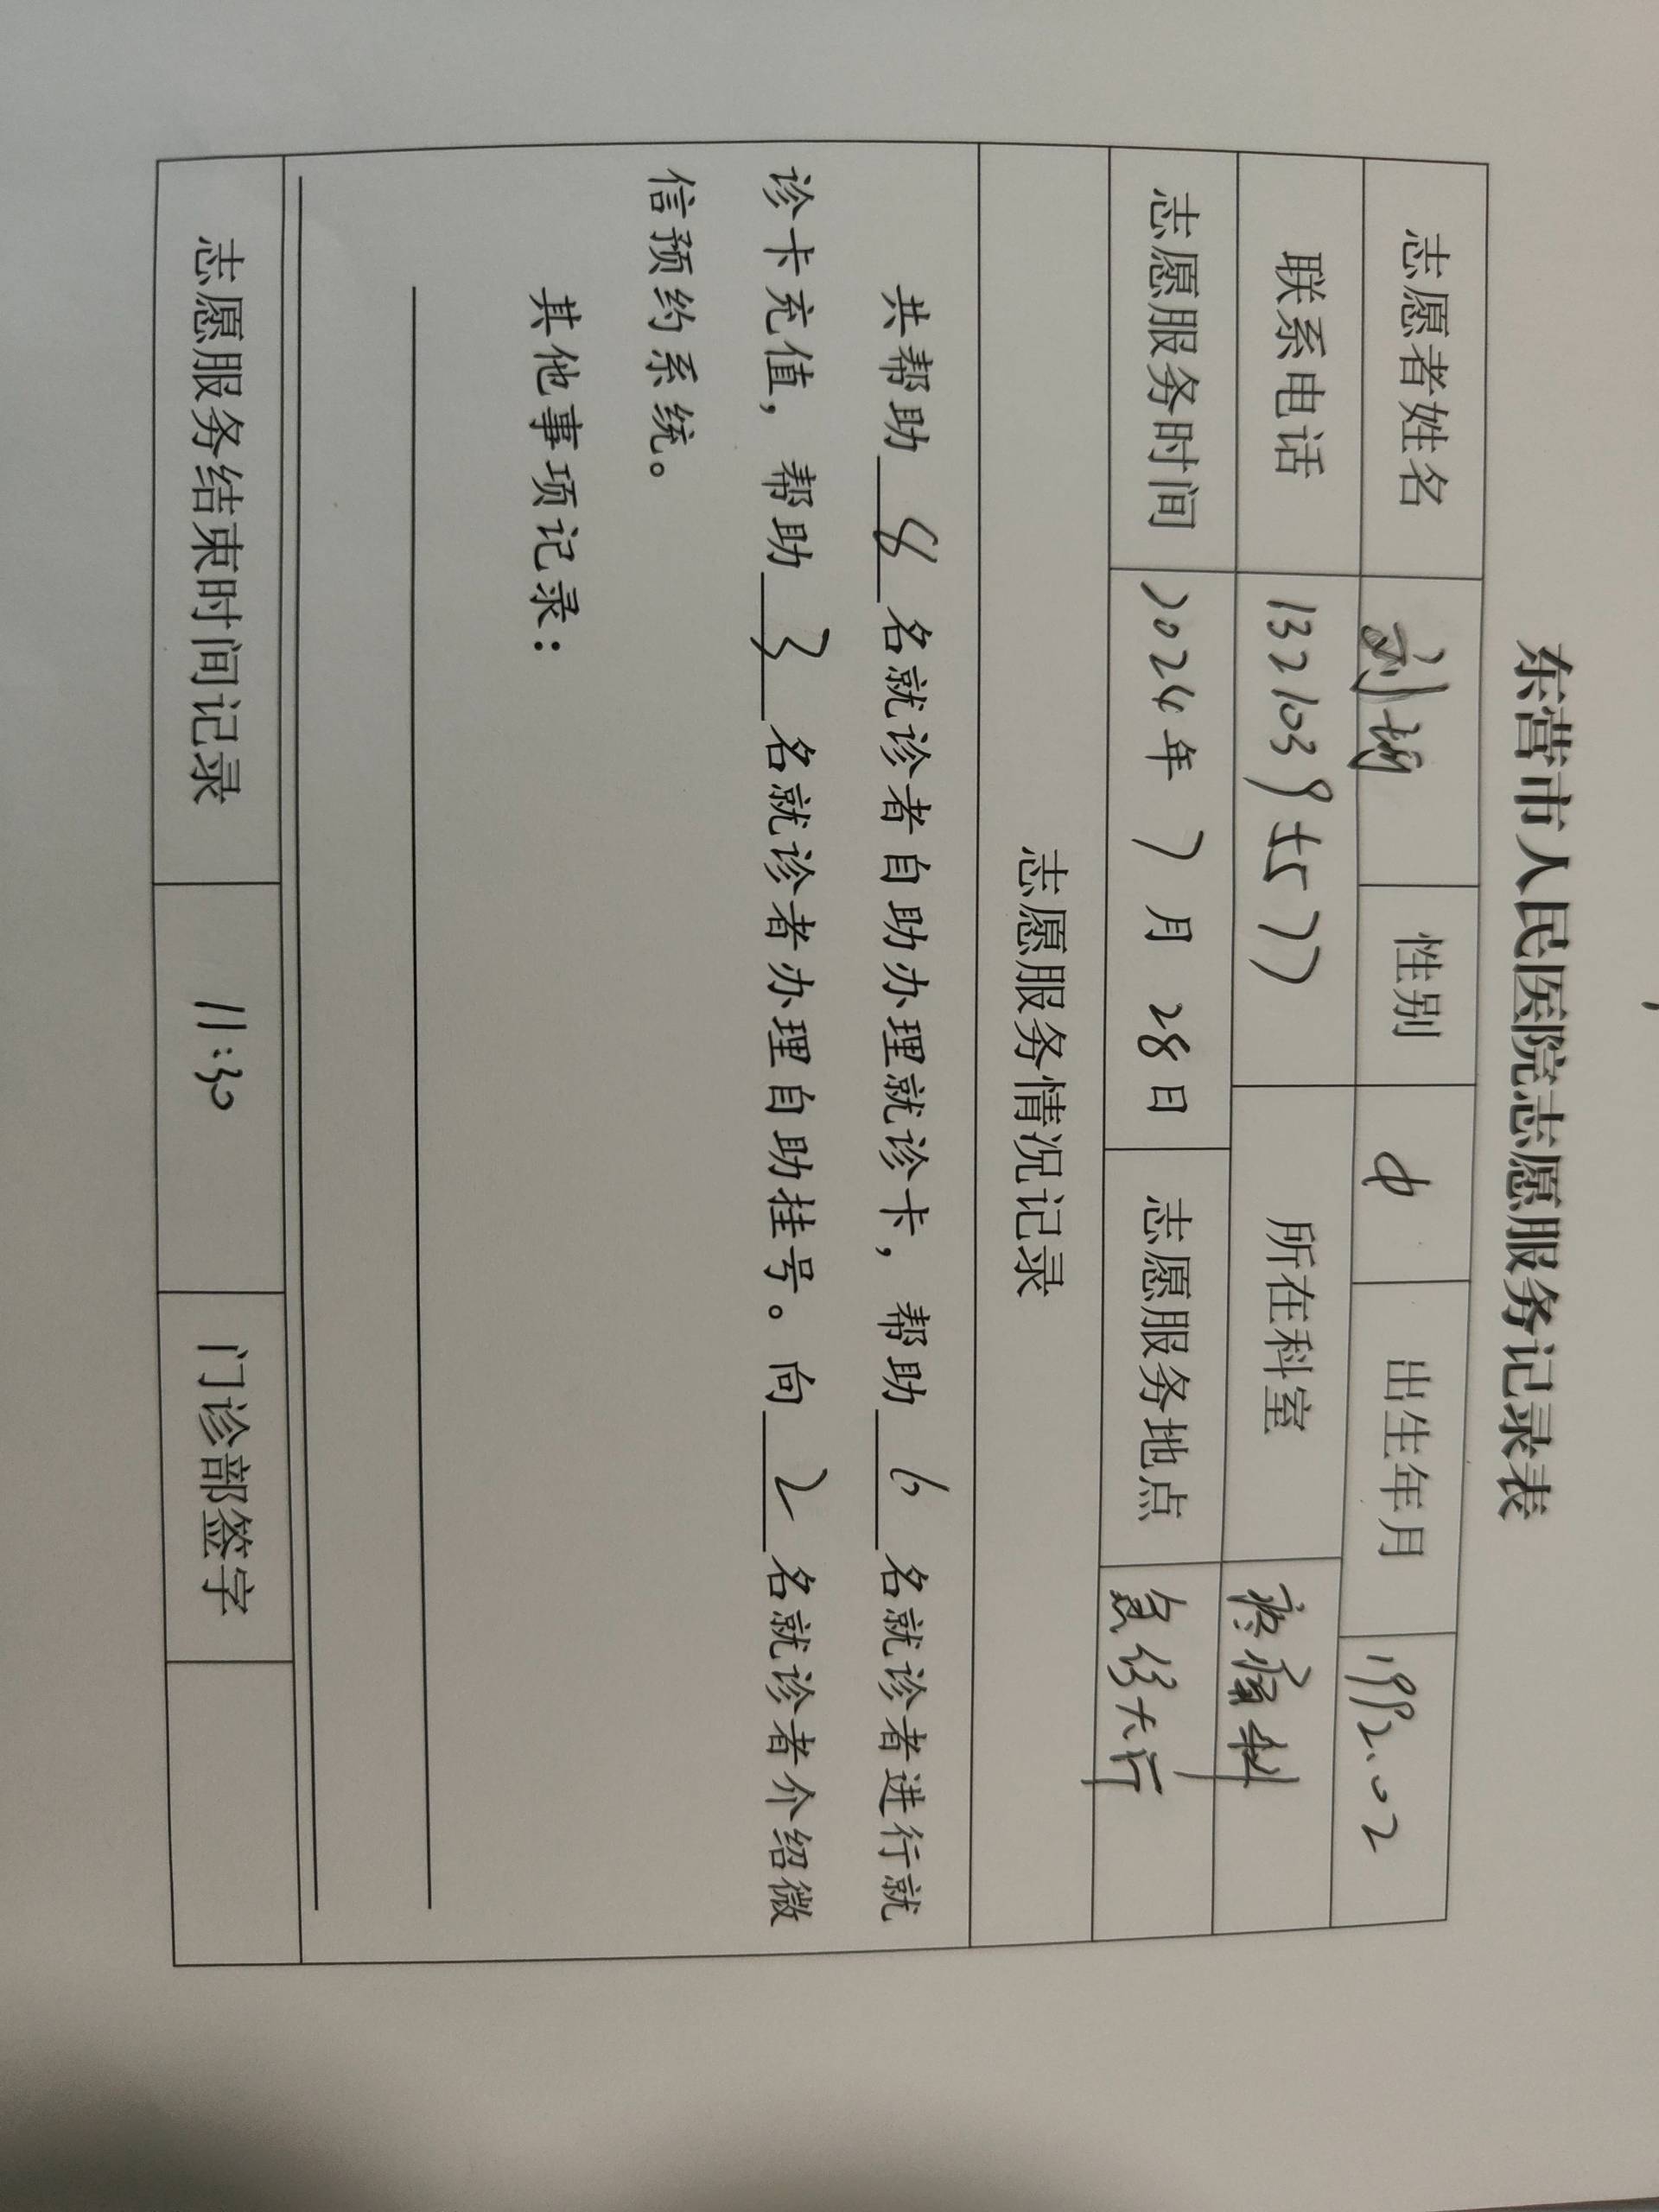 东营市人民医院志愿服务记录表
志愿者姓名 刘 性别 出生年月 1992.02
联系电话 13210395577 所在科室 疼痛科
志愿服务时间 2024年 7 月 28 日 志愿服务地点 急诊大厅
志愿服务情况记录
共帮助 8 名就诊者自助办理就诊卡，帮助 6 名就诊者进行就
诊卡充值，帮助 3 名就诊者办理自助挂号。向 2 名就诊者介绍微
信预约系统。
其他事项记录：
志愿服务结束时间记录 11:30 门诊部签字